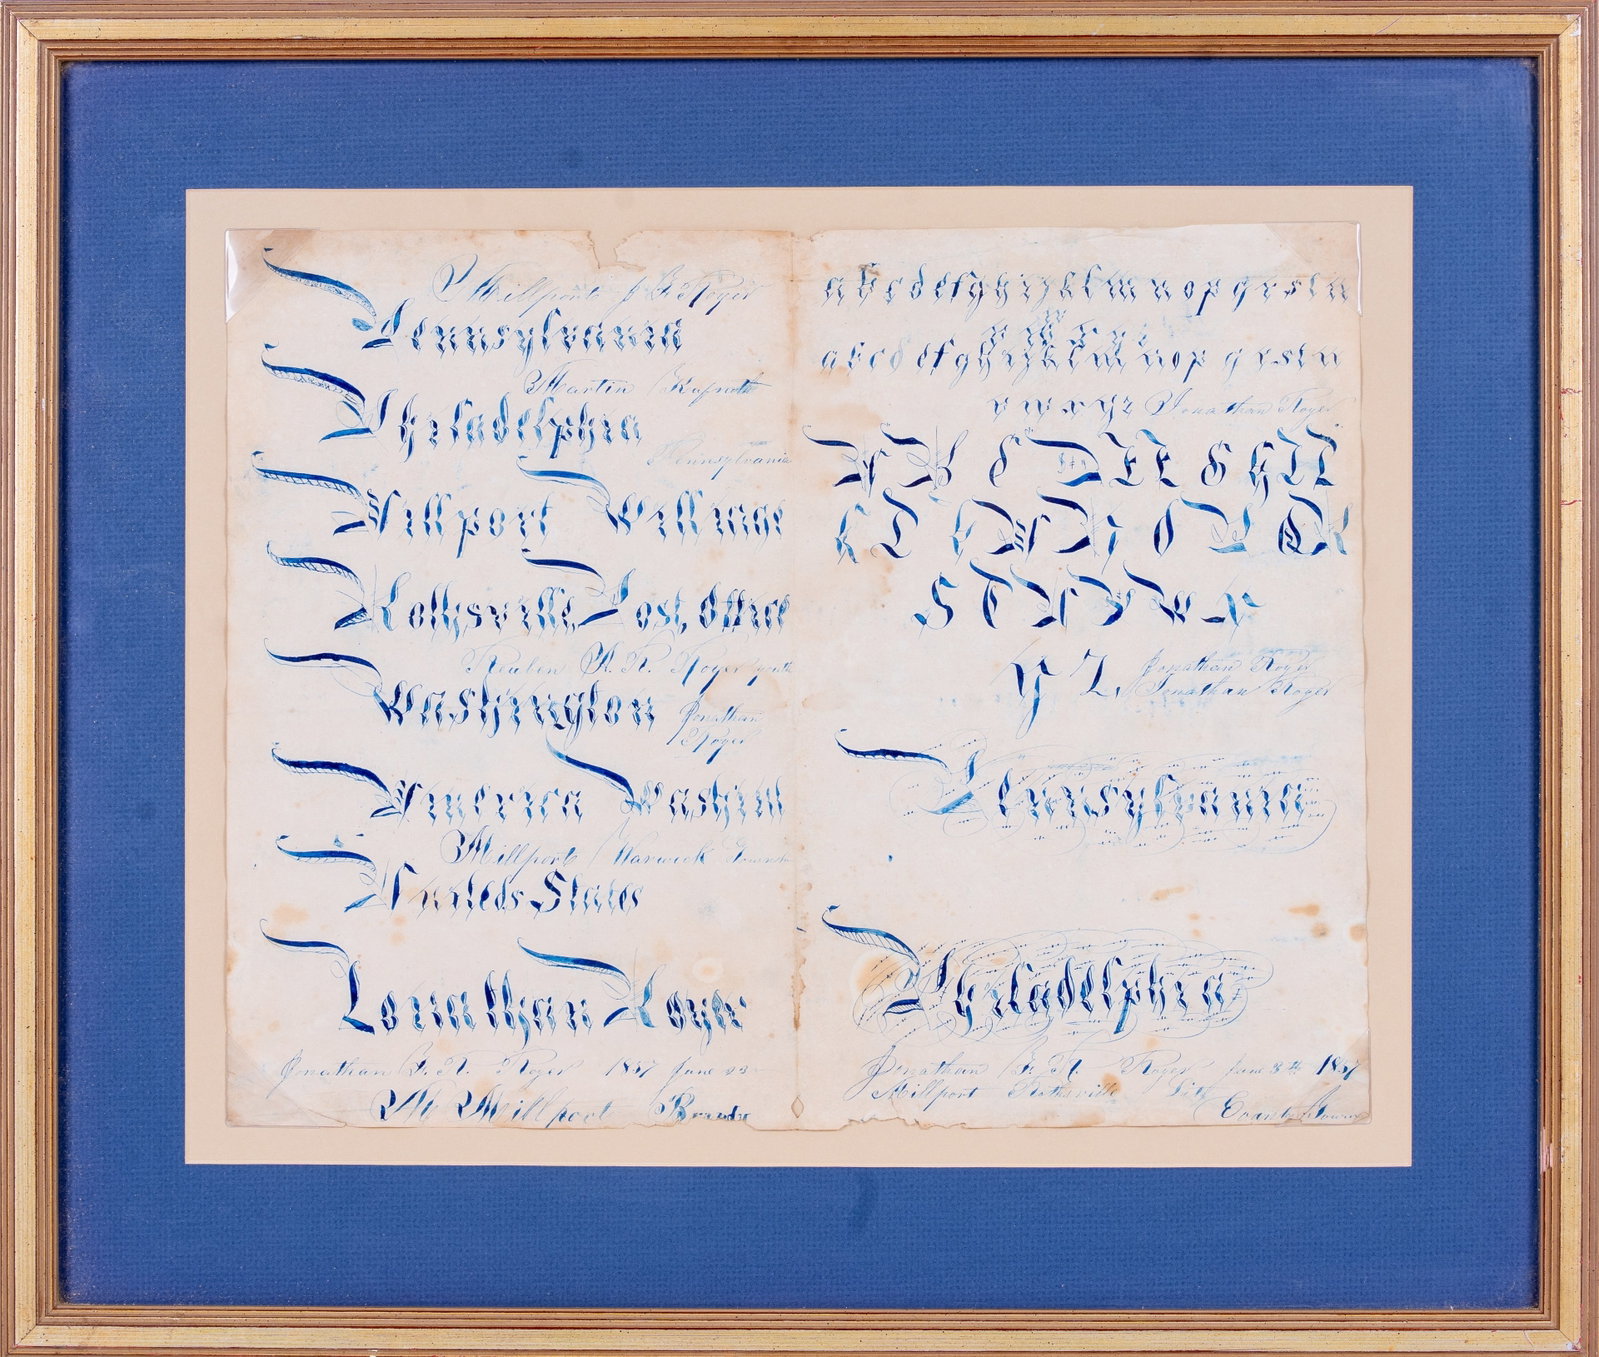 Millport J. G. Royer
Pennsylvania
Martin
Philadelphia
Pennsylvania
Millport Willage
Rothsville Post, Office
Reuben R. Royer
Washington Jonathan
Royer
America Washin
Millport Warwick
Uniteds States
Jonathan Royer
Jonathan G. R. Royer 1857 June
Millport
abcdefghijklmnopqrstu
v w x y z
abcdefghijklmnopqrstu
v w x y z Jonathan Royer
A B C D E F G H I J
K L M N O P Q R
S T U V W X
Y Z, Jonathan Royer
Jonathan Royer
Pennsylvania
Philadelphia
Jonathan G. R. Royer June 3th 1857
Millport Rothsville